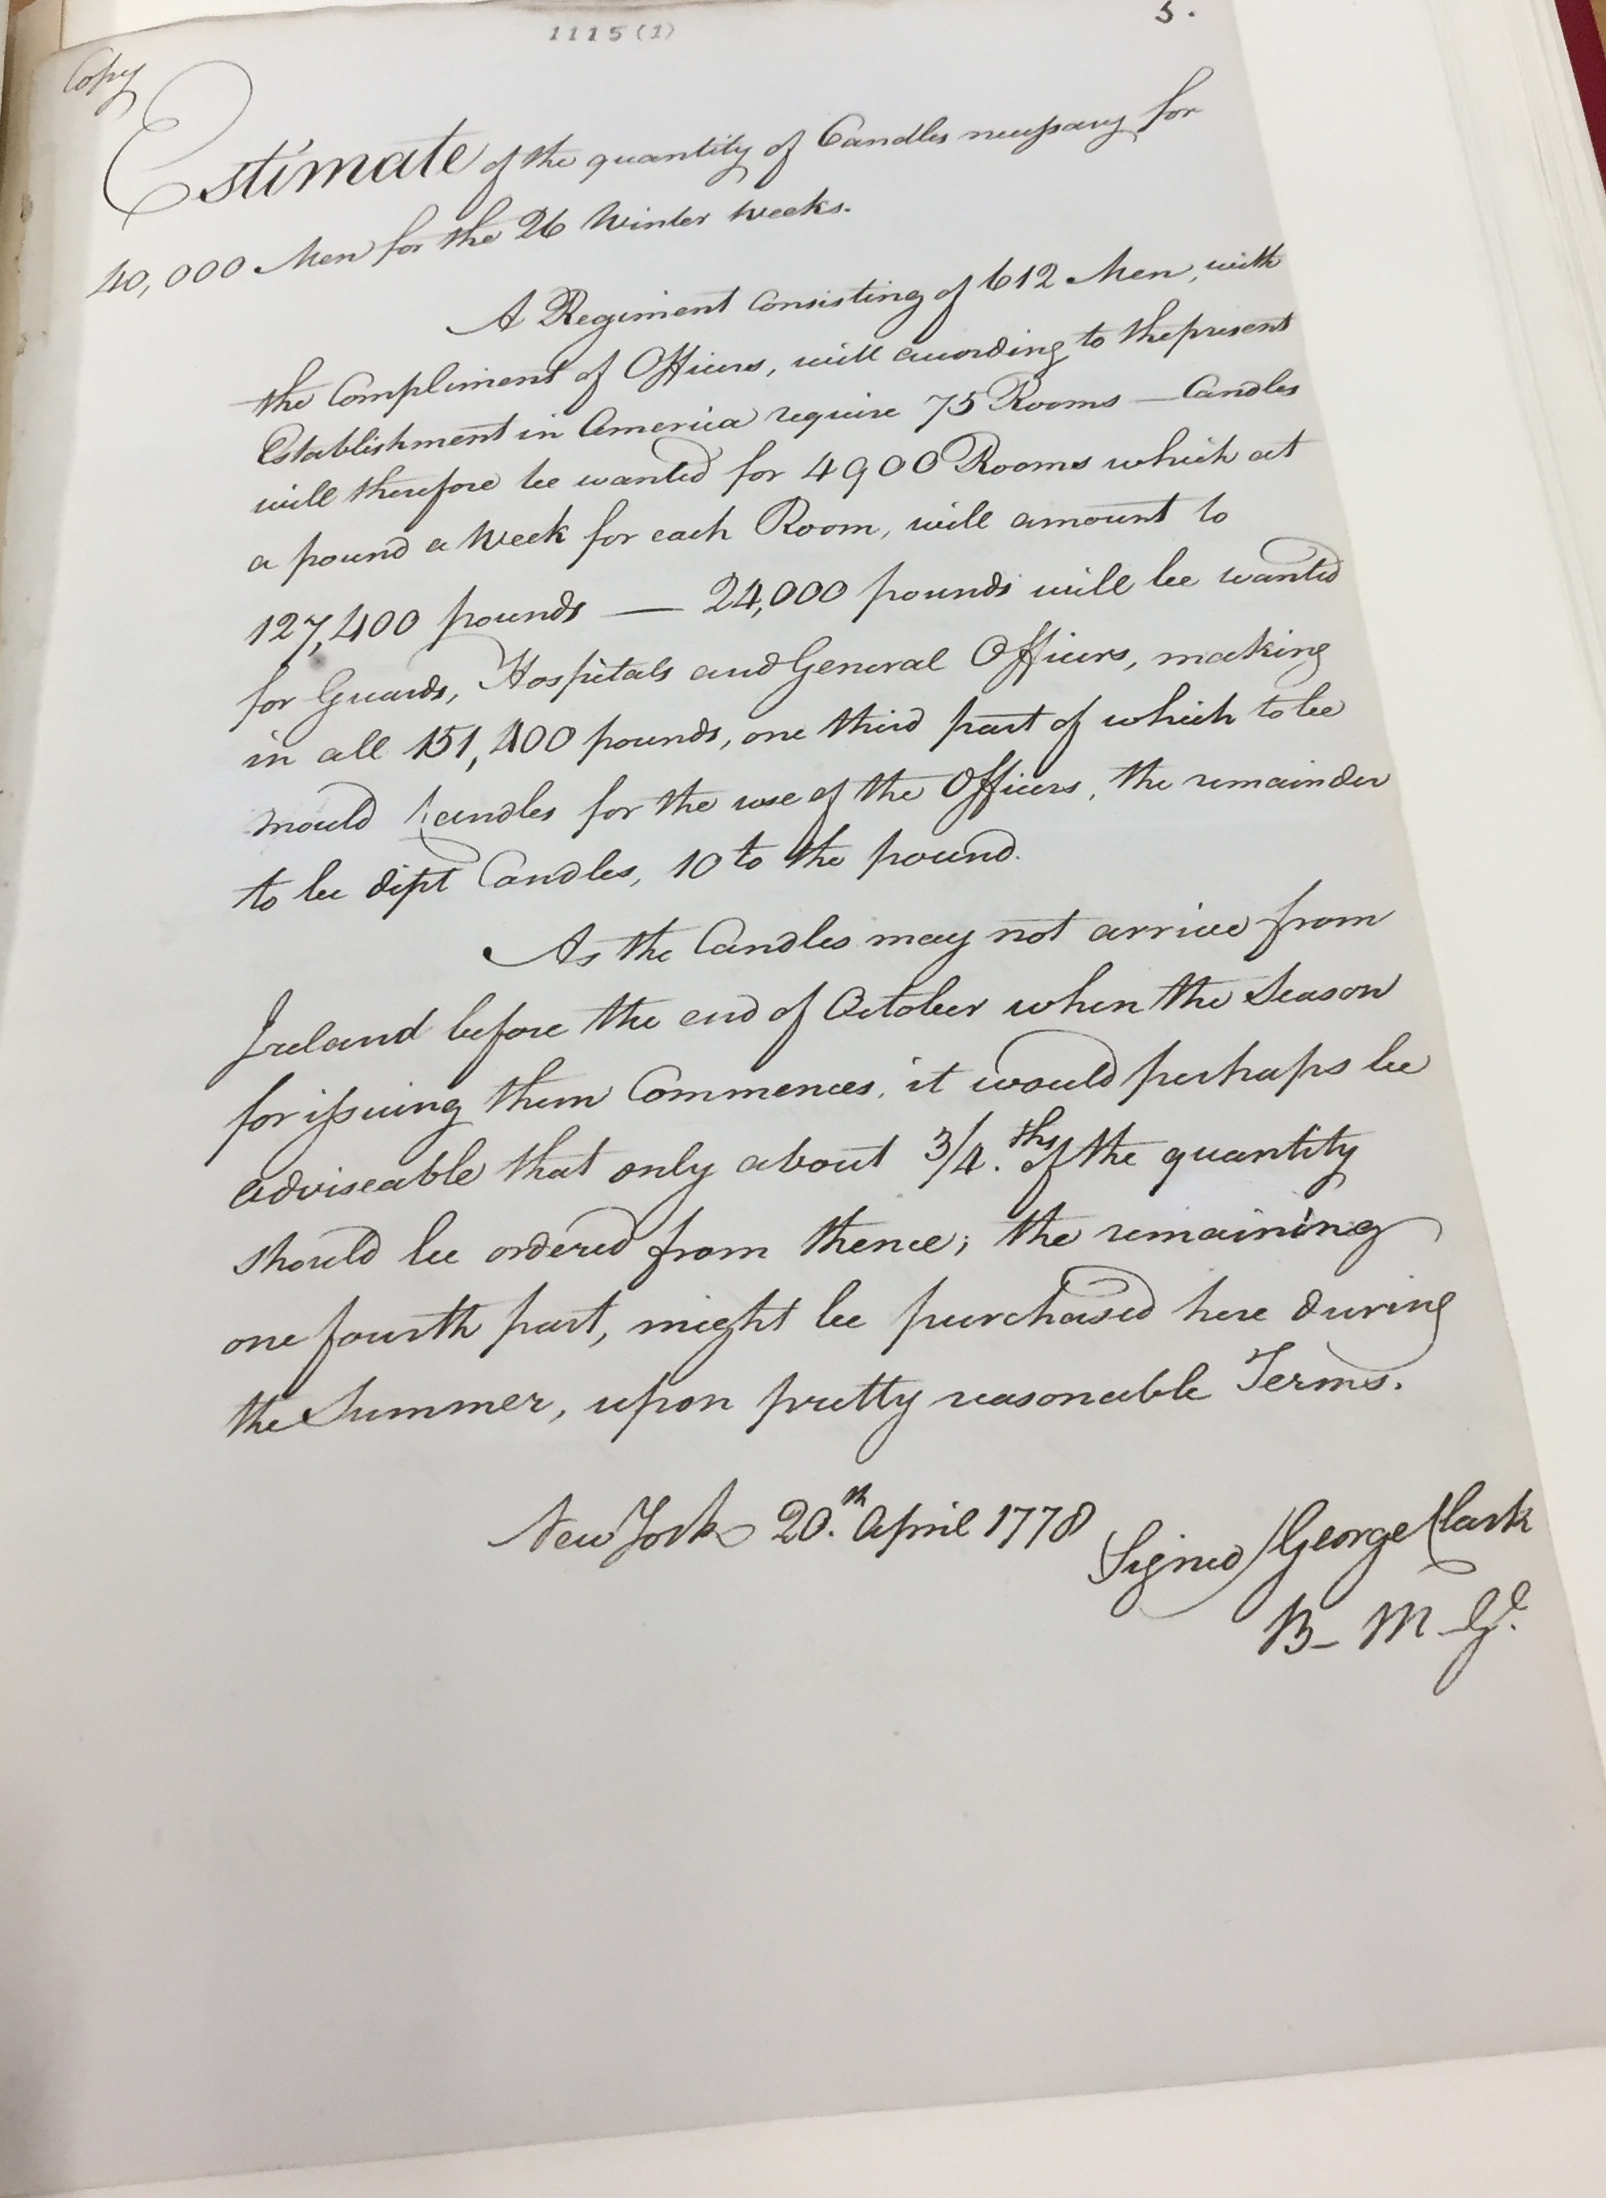 1115(1)
5.
Copy
Estimate of the quantity of Candles necessary for
40,000 Men for the 26 Winter Weeks.
A Regiment Consisting of 612 Men, with
the Compliment of Officers, will according to the present
Establishment in America require 75 Rooms — Candles
will therefore be wanted for 4900 Rooms which at
a pound a Week for each Room, will amount to
127,400 pounds — 24,000 pounds will be wanted
for Guards, Hospitals and General Officers, making
in all 151,400 pounds, one third part of which to be
mould Candles for the use of the Officers, the remainder
to be dipt Candles, 10 to the pound.
As the Candles may not arrive from
Ireland before the end of October when the Season
for issuing them Commences, it would perhaps be
adviseable that only about 3/4.ths of the quantity
should be ordered from thence; the remaining
one fourth part, might be purchased here during
the Summer, upon pretty reasonable Terms.
New York 20.th April 1778
Signed / George Clark
B– M Gl.